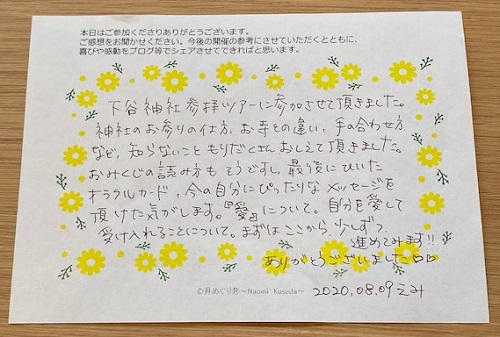 本日はご参加くださりありがとうございます。
ご感想をお聞かせください。今後の開催の参考にさせていただくとともに、
喜びや感動をブログ等でシェアさせてできればと思います。
下谷神社参拝ツアーに参加させて頂きました。
神社のお参りの仕方、お寺との違い、手の合わせ方
など、知らないこともりだくさんおしえて頂きました。
おみくじの読み方もそうですし、最後にひいた
オラクルカード、今の自分にぴったりなメッセージを
頂けた気がします。『愛』について。自分を愛して
受け入れることについて。まずはここから、少しずつ
進めてみます!!
ありがとうございました♡♡
©月めぐり®～Naomi Kusuda～
2020.08.09 えみ